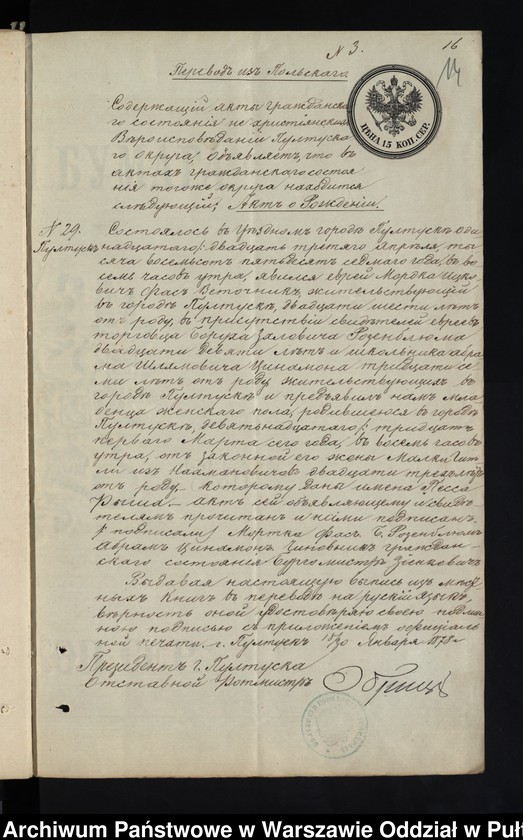 N 3.
16
14
Переводъ изъ Польскаго
ЦѢНА 15 КОП. СЕР.
Содержащій акты гражданска
го состоянія не христіанскихъ
Вѣроисповѣданій Пултуска
го округа, объявляетъ, что въ
актахъ гражданскаго состоя
нія тогоже округа находится
слѣдующій; Актъ о Рожденіи.
N 29. Состоялось въ Уѣздномъ городѣ Пултускѣ оди
Пултускъ надцатаго /: двадцать третяго Апрѣля, ты
сяча восемьсотъ пятьдесятъ седмаго года, въ во
семь часовъ утра, явился еврей Мордка Ицко
вичъ Фасъ жительствующій
въ городѣ Пултускѣ, двадцати шести лѣтъ
отъ роду, въ присутствіи свидѣтелей евреевъ
торговца Боруха Зяловича Розенблюма
двадцати девяти лѣтъ и школьника Абра
ма Шлямовича Цинамона тридцати се
ми лѣтъ отъ роду жительствующихъ въ
городѣ Пултускѣ и предъявилъ намъ мла
денца женскаго пола, родившеюся въ городѣ
Пултускѣ, девятьнадцатаго /: тридцать
перваго Марта сего года, въ восемь часовъ
утра, отъ законной его жены Малки Гит
ли изъ Нахмановичовъ двадцати трехъ лѣтъ
отъ роду, которому даны имена Песса
Рыша. — актъ сей объявляющему и свидѣ
телямъ прочитанъ и ними подписанъ.
/ подписали / Мортка Фасъ. Б. Розенблюмъ
Абрамъ Цинамонъ Чиновникъ граждан
скаго состоянія Бургомистръ
Выдавая настоящую выпись изъ
ныхъ книгъ въ переводѣ на рускій языкъ
вѣрность оной удостовѣряю своею подпи
ною подписью съ приложеніемъ офиціаль
ной печати. г. Пултускъ 18/30 Января 1878 г.
Президентъ г. Пултуска
Отставной Ротмистръ
Archiwum Państwowe w Warszawie Oddział w Puł